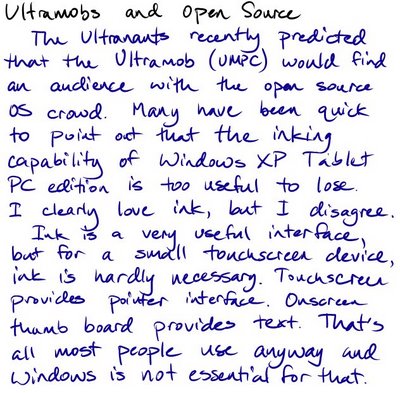 Ultramobs and Open Source
The Ultranauts recently predicted
that the Ultramob (UMPC) would find
an audience with the open source
OS crowd. Many have been quick
to point out that the inking
capability of Windows XP Tablet
PC edition is too useful to lose.
I clearly love ink, but I disagree.
Ink is a very useful interface,
but for a small touchscreen device,
ink is hardly necessary. Touchscreen
provides pointer interface. Onscreen
thumb board provides text. That's
all most people use anyway and
Windows is not essential for that.